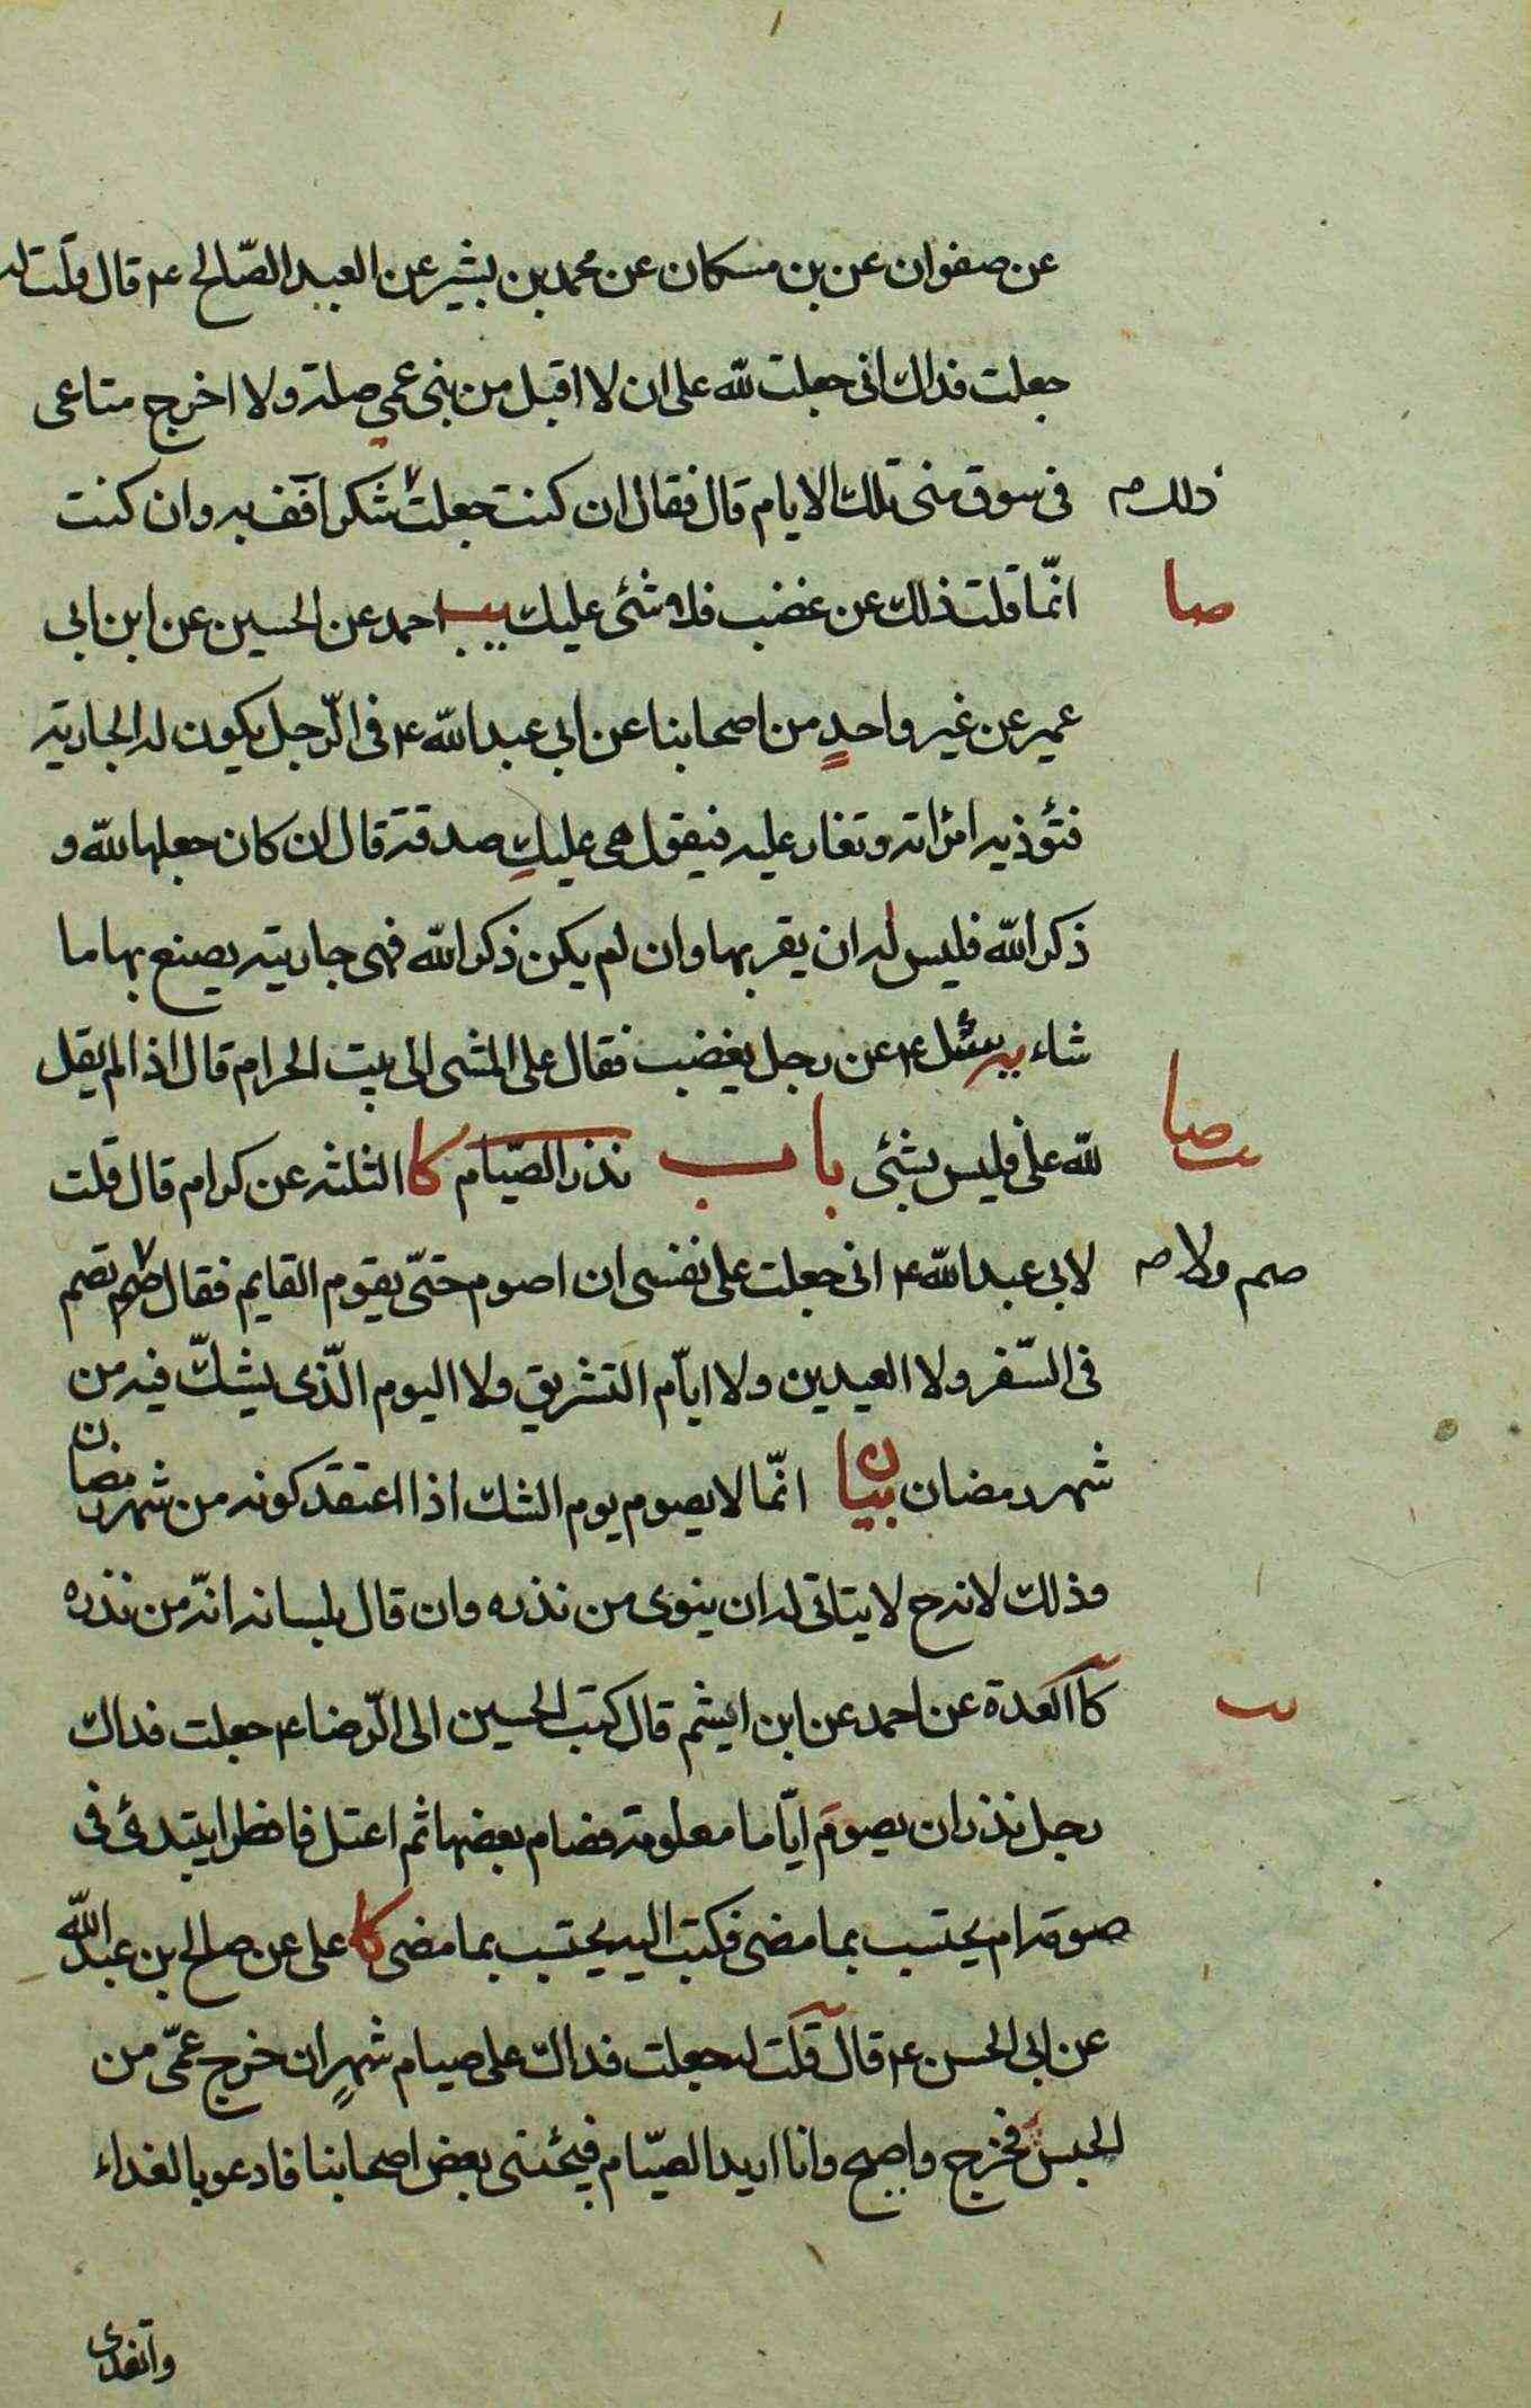 عن صفوان عن بن مسكان عن محمد بن بشير عن العبد الصّالح ع قال قلت له
جعلت فداك انى جعلت لله على ان لا اقبل من بنى عمى صلة ولا اخرج متاعى
فى سوق منى تلك الايام قال فقال ان كنت جعلت شكرا فف به وان كنت
ذلك صح
انّما قلت ذلك عن غضب فلا شئى عليك يب احمد عن الحسين عن ابن ابى
صا
عمير عن غير واحدٍ من اصحابنا عن ابى عبد الله ع فى الرّجل يكون له الجارية
فتؤذيه امرأته وتغار عليه فيقول هى عليكِ صدقة قال ان كان جعلها لله و
ذكر الله فليس له ان يقربها وان لم يكن ذكر الله فهى جاريته يصنع بها ما
شاء يه سئل ع عن رجل يغضب فقال على المشى الى بيت الحرام قال اذا لم يقل
لله على فليس بشئى باب نذر الصّيام كا الثلثه عن كرام قال قلت
صا
لابى عبد الله ع انى جعلت على نفسى ان اصوم حتّى يقوم القايم فقال تصم
صم ولا صح
فى السّفر ولا العيدين ولا ايّام التشريق ولا اليوم الّذى يشكّ فيه من
شهر رمضان بيان انّما لا يصوم يوم الشك اذا اعتقد كونه من شهر رمضان
وذلك لانه ح لا يتاتى له ان ينوى من نذره وان قال بلسانه انّه من نذره
كا العدة عن احمد عن ابن اشيم قال كتب الحسين الى الرّضا ع جعلت فداك
يب
رجل نذر ان يصومَ ايّاما معلومة فصام بعضها ثم اعتل فافطر ايبتدئ فى
صومه ام يحتسب بما مضى فكتب اليه يحتسب بما مضى كا على عن صالح بن عبد الله
عن ابى الحسن ع قال قلت له جعلت فداك على صيام شهرٍ ان خرج عمّى من
الحبس فخرج واصبح وانا اريد الصّيام فيجئنى بعض اصحابنا فادعو بالغداء
واتغدى